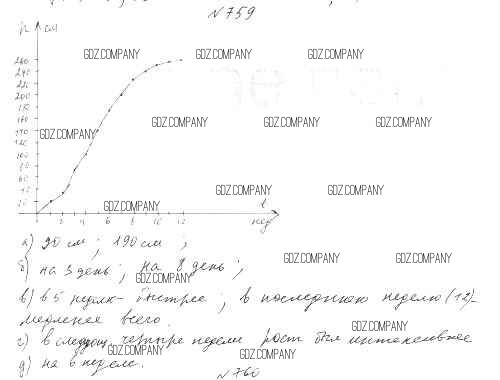 №759
h, см
GDZ.COMPANY GDZ.COMPANY GDZ.COMPANY
260
240
220
200
180
160
140
120
100
80
60
40
20
GDZ.COMPANY GDZ.COMPANY GDZ.COMPANY GDZ.COMPANY
GDZ.COMPANY GDZ.COMPANY GDZ.COMPANY
1 2 3 4 5 6 7 8 9 10 11 12
t
нед
а) 90 см; 190 см;
б) на 3 день; на 8 день;
GDZ.COMPANY GDZ.COMPANY GDZ.COMPANY
в) в 5 неделю - быстрее; в последнюю неделю (12)-
медленее всего.
GDZ.COMPANY
г) в следующ. четыре недели рост был интенсивнее
GDZ.COMPANY GDZ.COMPANY
д) на 6 неделе.
№760